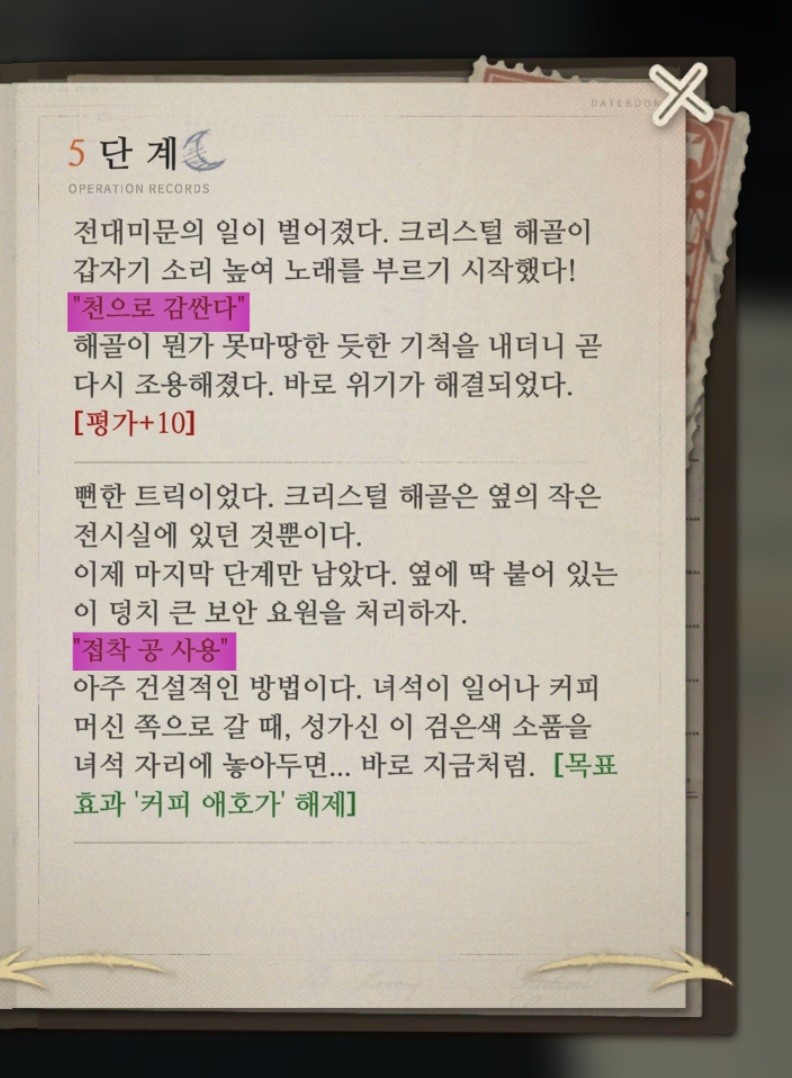 DATEBOO
5 단 계
OPERATION RECORDS
전대미문의 일이 벌어졌다. 크리스털 해골이
갑자기 소리 높여 노래를 부르기 시작했다!
"천으로 감싼다"
해골이 뭔가 못마땅한 듯한 기척을 내더니 곧
다시 조용해졌다. 바로 위기가 해결되었다.
[평가+10]
뻔한 트릭이었다. 크리스털 해골은 옆의 작은
전시실에 있던 것뿐이다.
이제 마지막 단계만 남았다. 옆에 딱 붙어 있는
이 덩치 큰 보안 요원을 처리하자.
"접착 공 사용"
아주 건설적인 방법이다. 녀석이 일어나 커피
머신 쪽으로 갈 때, 성가신 이 검은색 소품을
녀석 자리에 놓아두면... 바로 지금처럼. [목표
효과 '커피 애호가' 해제]